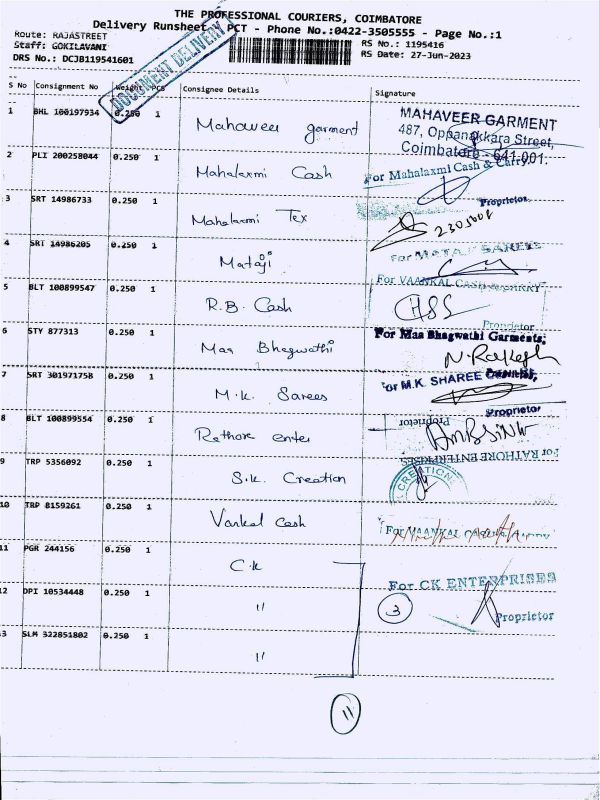 THE PROFESSIONAL COURIERS, COIMBATORE
Delivery Runsheet - PCT - Phone No.:0422-3505555 - Page No.:1
Route: RAJASTREET
Staff: GOKILAVANI
DRS No.: DCJB119541601
RS No.: 1195416
RS Date: 27-Jun-2023
DOCUMENT DELIVERY
S No Consignment No Weight PCS Consignee Details Signature
1 BHL 100197934 0.250 1 Mahaveer garment
MAHAVEER GARMENT
487, Oppanakkara Street,
Coimbatore - 641 001.
2 PLI 200258044 0.250 1 Mahalaxmi Cash
For Mahalaxmi Cash & Carry
Proprietor
3 SRT 14986733 0.250 1 Mahalaxmi Tex
4 SRT 14986205 0.250 1 Mataji
For MATAJI SAREES
5 BLT 100899547 0.250 1 R.B. Cash
For VAANKAL CASH & CARRY
Proprietor
6 STY 877313 0.250 1 Maa Bhegwathi
For Maa Bhagwathi Garments,
N. Rajkesh
7 SRT 301971758 0.250 1 M.K. Sarees
For M.K. SHAREE
Proprietor
8 BLT 100899554 0.250 1 Rathore enter
Proprietor
For RATHORE ENTERPRISES
9 TRP 5356092 0.250 1 S.K. Creation
CREATION
10 TRP 8159261 0.250 1 Vankal Cash
For VAANKAL
11 PGR 244156 0.250 1 C.K
For CK ENTERPRISES
Proprietor
12 DPI 10534448 0.250 1 "
3
13 SLM 322851802 0.250 1 "
11